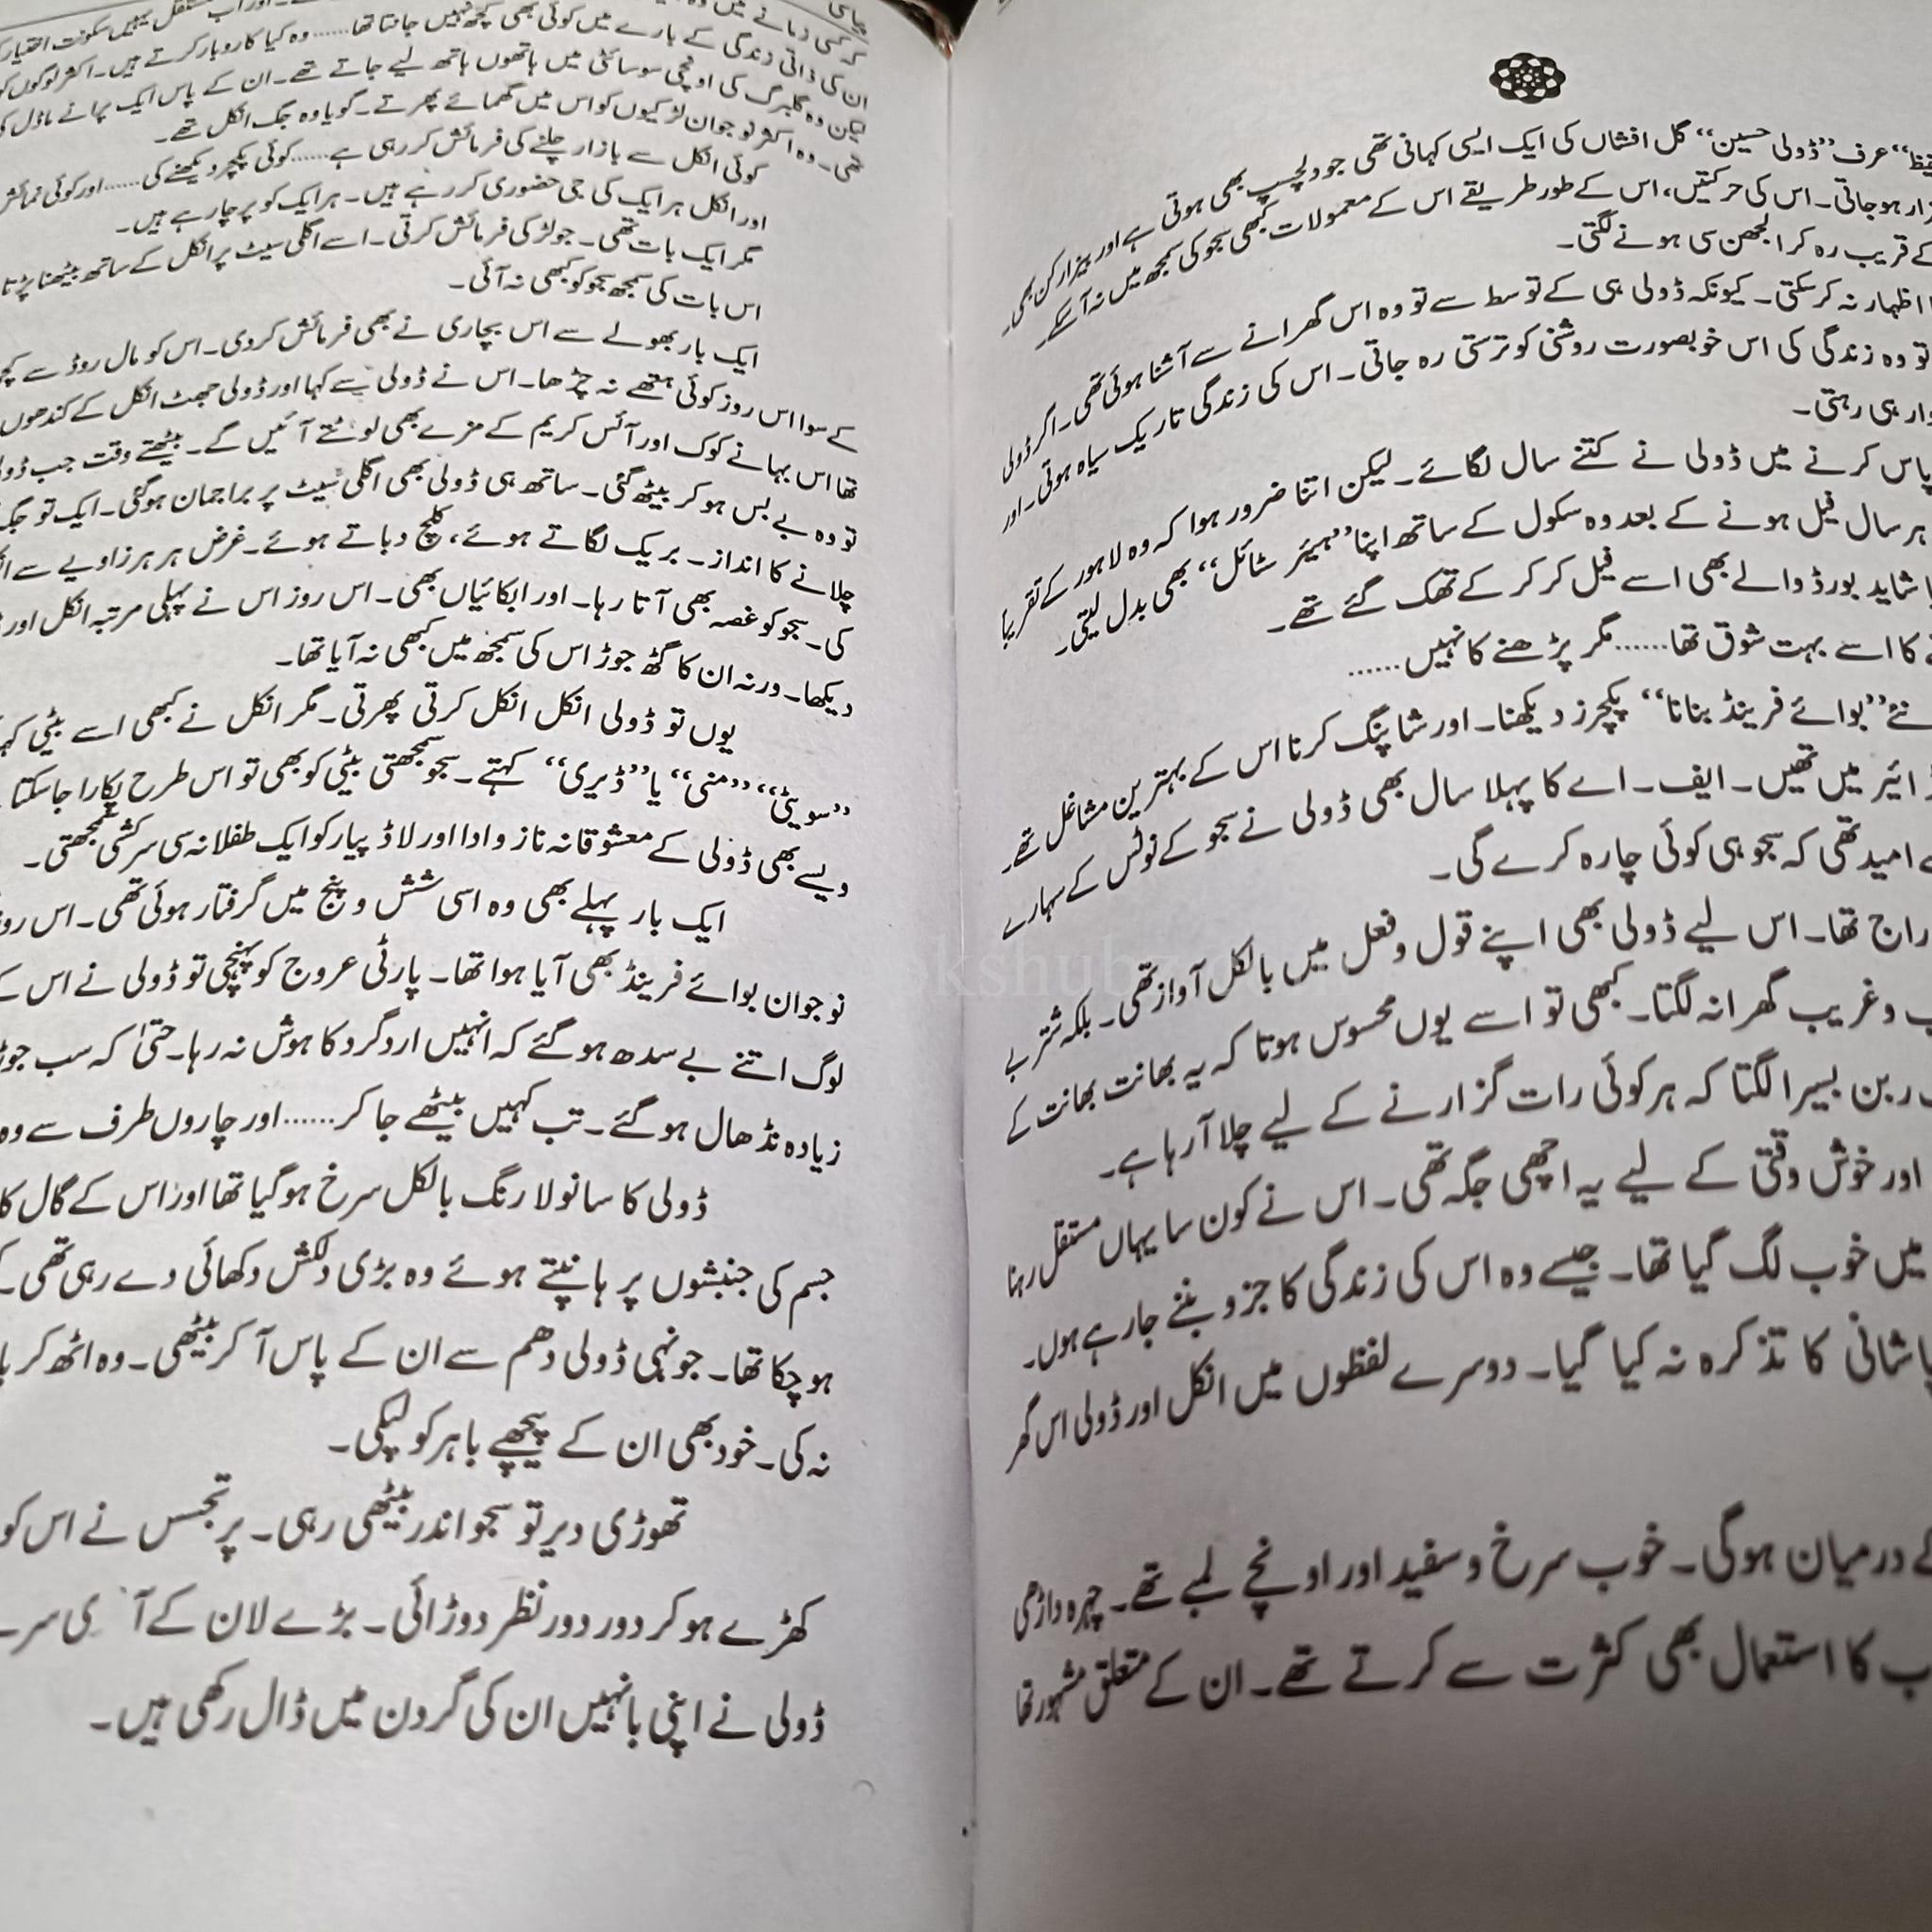 پیاسی
عرف ”ڈولی حسین“ گل افشاں کی ایک ایسی کہانی تھی جو دلچسپ بھی ہوتی ہے اور بیزار کن بھی۔
ہوجاتی۔ اس کی حرکتیں، اس کے طور طریقے اس کے معمولات کبھی سجو کی سمجھ میں نہ آسکے۔
کے قریب رہ کر الجھن سی ہونے لگتی۔
اظہار نہ کرسکتی۔ کیونکہ ڈولی ہی کے توسط سے تو وہ اس گھرانے سے آشنا ہوئی تھی۔ اگر ڈولی
تو وہ زندگی کی اس خوبصورت روشنی کو ترستی رہ جاتی۔ اس کی زندگی تاریک سیاہ ہوتی۔ اور
ہی رہتی۔
پاس کرنے میں ڈولی نے کتنے سال لگائے۔ لیکن اتنا ضرور ہوا کہ وہ لاہور کے تقریبا
ہر سال فیل ہونے کے بعد وہ سکول کے ساتھ اپنا ”ہیئر سٹائل“ بھی بدل لیتی۔
شاید بورڈ والے بھی اسے فیل کر کر کے تھک گئے تھے۔
کا اسے بہت شوق تھا...... مگر پڑھنے کا نہیں......
نئے ”بوائے فرینڈ بنانا“ پکچرز دیکھنا۔ اور شاپنگ کرنا اس کے بہترین مشاغل تھے۔
ائیر میں تھیں۔ ایف۔ اے کا پہلا سال بھی ڈولی نے سجو کے نوٹس کے سہارے
امید تھی کہ سجو ہی کوئی چارہ کرے گی۔
راج تھا۔ اس لیے ڈولی بھی اپنے قول و فعل میں بالکل آواز تھی۔ بلکہ شتر بے
و غریب گھرانہ لگتا۔ کبھی تو اسے یوں محسوس ہوتا کہ یہ بھانت بھانت کے
رین بسیرا لگتا کہ ہر کوئی رات گزارنے کے لیے چلا آرہا ہے۔
اور خوش وقتی کے لیے یہ اچھی جگہ تھی۔ اس نے کون سا یہاں مستقل رہنا
میں خوب لگ گیا تھا۔ جیسے وہ اس کی زندگی کا جزو بننے جارہے ہوں۔
پاشانی کا تذکرہ نہ کیا گیا۔ دوسرے لفظوں میں انکل اور ڈولی اس گھر
کے درمیان ہوگی۔ خوب سرخ و سفید اور اونچے لمبے تھے۔ چہرہ داڑھی
کا استعمال بھی کثرت سے کرتے تھے۔ ان کے متعلق مشہور تھا
کہ کسی زمانے میں
ان کی ذاتی زندگی کے بارے میں کوئی بھی کچھ نہیں جانتا تھا...... وہ کیا کاروبار کرتے ہیں۔ اکثر لوگوں کو
لیکن وہ گلبرگ کی اونچی سوسائٹی میں ہاتھوں ہاتھ لیے جاتے تھے۔ ان کے پاس ایک پرانے ماڈل کی
تھی۔ وہ اکثر نوجوان لڑکیوں کو اس میں گھمائے پھرتے۔ گویا وہ جگ انکل تھے۔
کوئی انکل سے بازار چلنے کی فرمائش کررہی ہے...... کوئی پکچر دیکھنے کی...... اور کوئی نمائش
اور انکل ہر ایک کی جی حضوری کررہے ہیں۔ ہر ایک کو پرچا رہے ہیں۔
مگر ایک بات تھی۔ جو لڑکی فرمائش کرتی۔ اسے اگلی سیٹ پر انکل کے ساتھ بیٹھنا پڑتا
اس بات کی سمجھ سجو کو کبھی نہ آئی۔
ایک بار بھولے سے اس بچاری نے بھی فرمائش کردی۔ اس کو مال روڈ سے
کے سوا اس روز کوئی ہتھے نہ چڑھا۔ اس نے ڈولی سے کہا اور ڈولی جھٹ انکل کے کندھوں
تھا اس بہانے کوک اور آئس کریم کے مزے بھی لوٹتے آئیں گے۔ بیٹھتے وقت جب
تو وہ بے بس ہو کر بیٹھ گئی۔ ساتھ ہی ڈولی بھی اگلی سیٹ پر براجمان ہوگئی۔ ایک تو
چلانے کا انداز۔ بریک لگاتے ہوئے، کلچ دباتے ہوئے۔ غرض ہر ہر زاویے سے
کی۔ سجو کو غصہ بھی آتا رہا۔ اور ابکائیاں بھی۔ اس روز اس نے پہلی مرتبہ انکل اور
دیکھا۔ ورنہ ان کا گٹھ جوڑ اس کی سمجھ میں کبھی نہ آیا تھا۔
یوں تو ڈولی انکل انکل کرتی پھرتی۔ مگر انکل نے کبھی اسے بیٹی
”سویٹی“ ”منی“ یا ”ڈیری“ کہتے۔ سجو سمجھتی بیٹی کو بھی تو اس طرح پکارا جاسکتا
ویسے بھی ڈولی کے معشوقانہ ناز و ادا اور لاڈ پیار کو ایک طفلانہ سی سرکشی سمجھتی۔
ایک بار پہلے بھی وہ اسی شش و پنج میں گرفتار ہوئی تھی۔ اس
نوجوان بوائے فرینڈ بھی آیا ہوا تھا۔ پارٹی عروج کو پہنچی تو ڈولی نے اس
لوگ اتنے بے سدھ ہوگئے کہ انہیں اردگرد کا ہوش نہ رہا۔ حتیٰ کہ سب
زیادہ نڈھال ہوگئے۔ تب کہیں بیٹھے جا کر...... اور چاروں طرف سے وہ
ڈولی کا سانولا رنگ بالکل سرخ ہوگیا تھا اور اس کے گال کا
جسم کی جنبشوں پر ہانپتے ہوئے وہ بڑی دلکش دکھائی دے رہی تھی۔
ہوچکا تھا۔ جونہی ڈولی دھم سے ان کے پاس آ کر بیٹھی۔ وہ اٹھ کر
نہ کی۔ خود بھی ان کے پیچھے باہر کو لپکی۔
تھوڑی دیر تو سجو اندر بیٹھی رہی۔ پر تجسس نے اس کو
کھڑے ہو کر دور دور نظر دوڑائی۔ بڑے لان کے
ڈولی نے اپنی بانہیں ان کی گردن میں ڈال رکھی ہیں۔